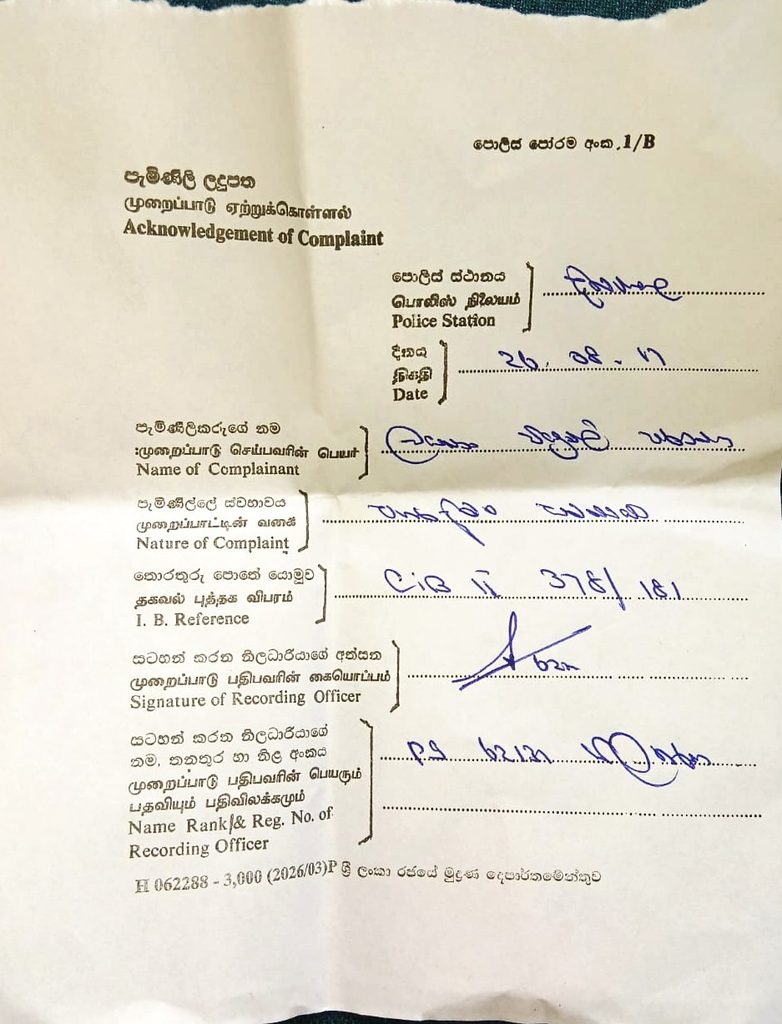 පොලිස් පෝරම අංක.1/B
පැමිණිලි ලදුපත
முறைப்பாடு ஏற்றுக்கொள்ளல்
Acknowledgement of Complaint
පොලිස් ස්ථානය
பொலிஸ் நிலையம்
Police Station
දිනය
திகதி
Date
26.08.17
පැමිණිලිකරුගේ නම
முறைப்பாடு செய்பவரின் பெயர்
Name of Complainant
පැමිණිල්ලේ ස්වභාවය
முறைப்பாட்டின் வகை
Nature of Complaint
තොරතුරු පොතේ යොමුව
தகவல் புத்தக விபரம்
I. B. Reference
CIB II 378/181
සටහන් කරන නිලධාරියාගේ අත්සන
முறைப்பாடு பதிபவரின் கையொப்பம்
Signature of Recording Officer
සටහන් කරන නිලධාරියාගේ
නම, තනතුර හා නිළ අංකය
முறைப்பாடு பதிபவரின் பெயரும்
பதவியும் பதிவிலக்கமும்
Name Rank & Reg. No. of
Recording Officer
H 062288 - 3,000 (2026/03)P ශ්‍රී ලංකා රජයේ මුද්‍රණ දෙපාර්තමේන්තුව